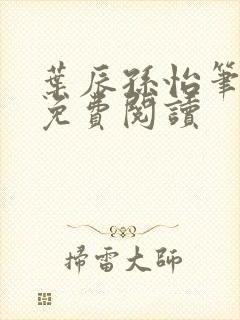 葉辰孫怡筆
免費閱讀
掃雷大師